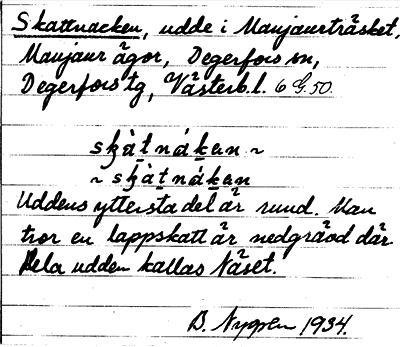 Skattnacken, udde i Manjaurträsket,
Manjaur ägor, Degerfors sn,
Degerfors tg, Västerb.l. 6 G 50
skàtnákan ~
~ skàtnákan
Uddens yttersta del är rund. Man
tror en lappskatt är nedgrävd där.
Hela udden kallas Näset.
B. Nygren 1934.